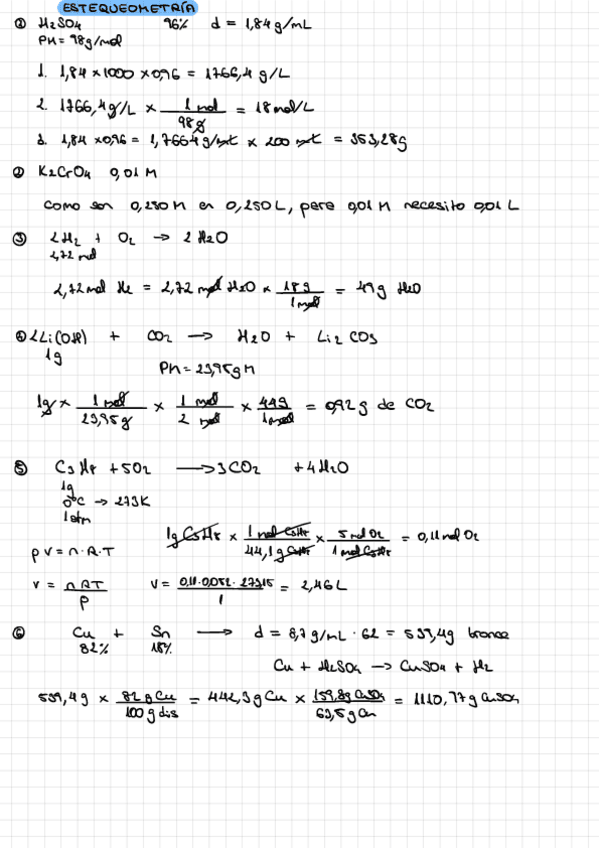 ESTEQUEOMETRÍA
① H2SO4 96% d = 1,84 g/mL
PM = 98g/mol
1. 1,84 × 1000 × 0,96 = 1766,4 g/L
2. 1766,4 g/L × 1 mol / 98g = 18 mol/L
3. 1,84 × 0,96 = 1,7664 g/mL × 200 mL = 353,28g
② K2CrO4 0,01 M
Como son 0,250 M en 0,250 L, para 0,01 M necesito 0,01 L
③ 2H2 + O2 → 2 H2O
2,72 mol
2,72 mol H2 = 2,72 mol H2O × 18 g / 1 mol = 49g H2O
④ 2Li(OH) + CO2 → H2O + Li2CO3
1g
PM = 23,95g M
1g × 1 mol / 23,95 g × 1 mol / 2 mol × 44g / 1 mol = 0,92 g de CO2
⑤ C3H8 + 5O2 → 3CO2 + 4H2O
1g
0°C → 273K
1 atm
1g C3H8 × 1 mol C3H8 / 44,1 g C3H8 × 5 mol O2 / 1 mol C3H8 = 0,11 mol O2
p v = n · R · T
v = nRT / p V = 0,11 · 0,082 · 273,15 / 1 = 2,46 L
⑥ Cu + Sn → d = 8,7 g/mL · 62 = 539,4g bronce
82% 18%
Cu + H2SO4 → CuSO4 + H2
539,4 g × 82 g Cu / 100 g dis = 442,3 g Cu × 159,8g CuSO4 / 63,5 g Cu = 1110,77 g CuSO4